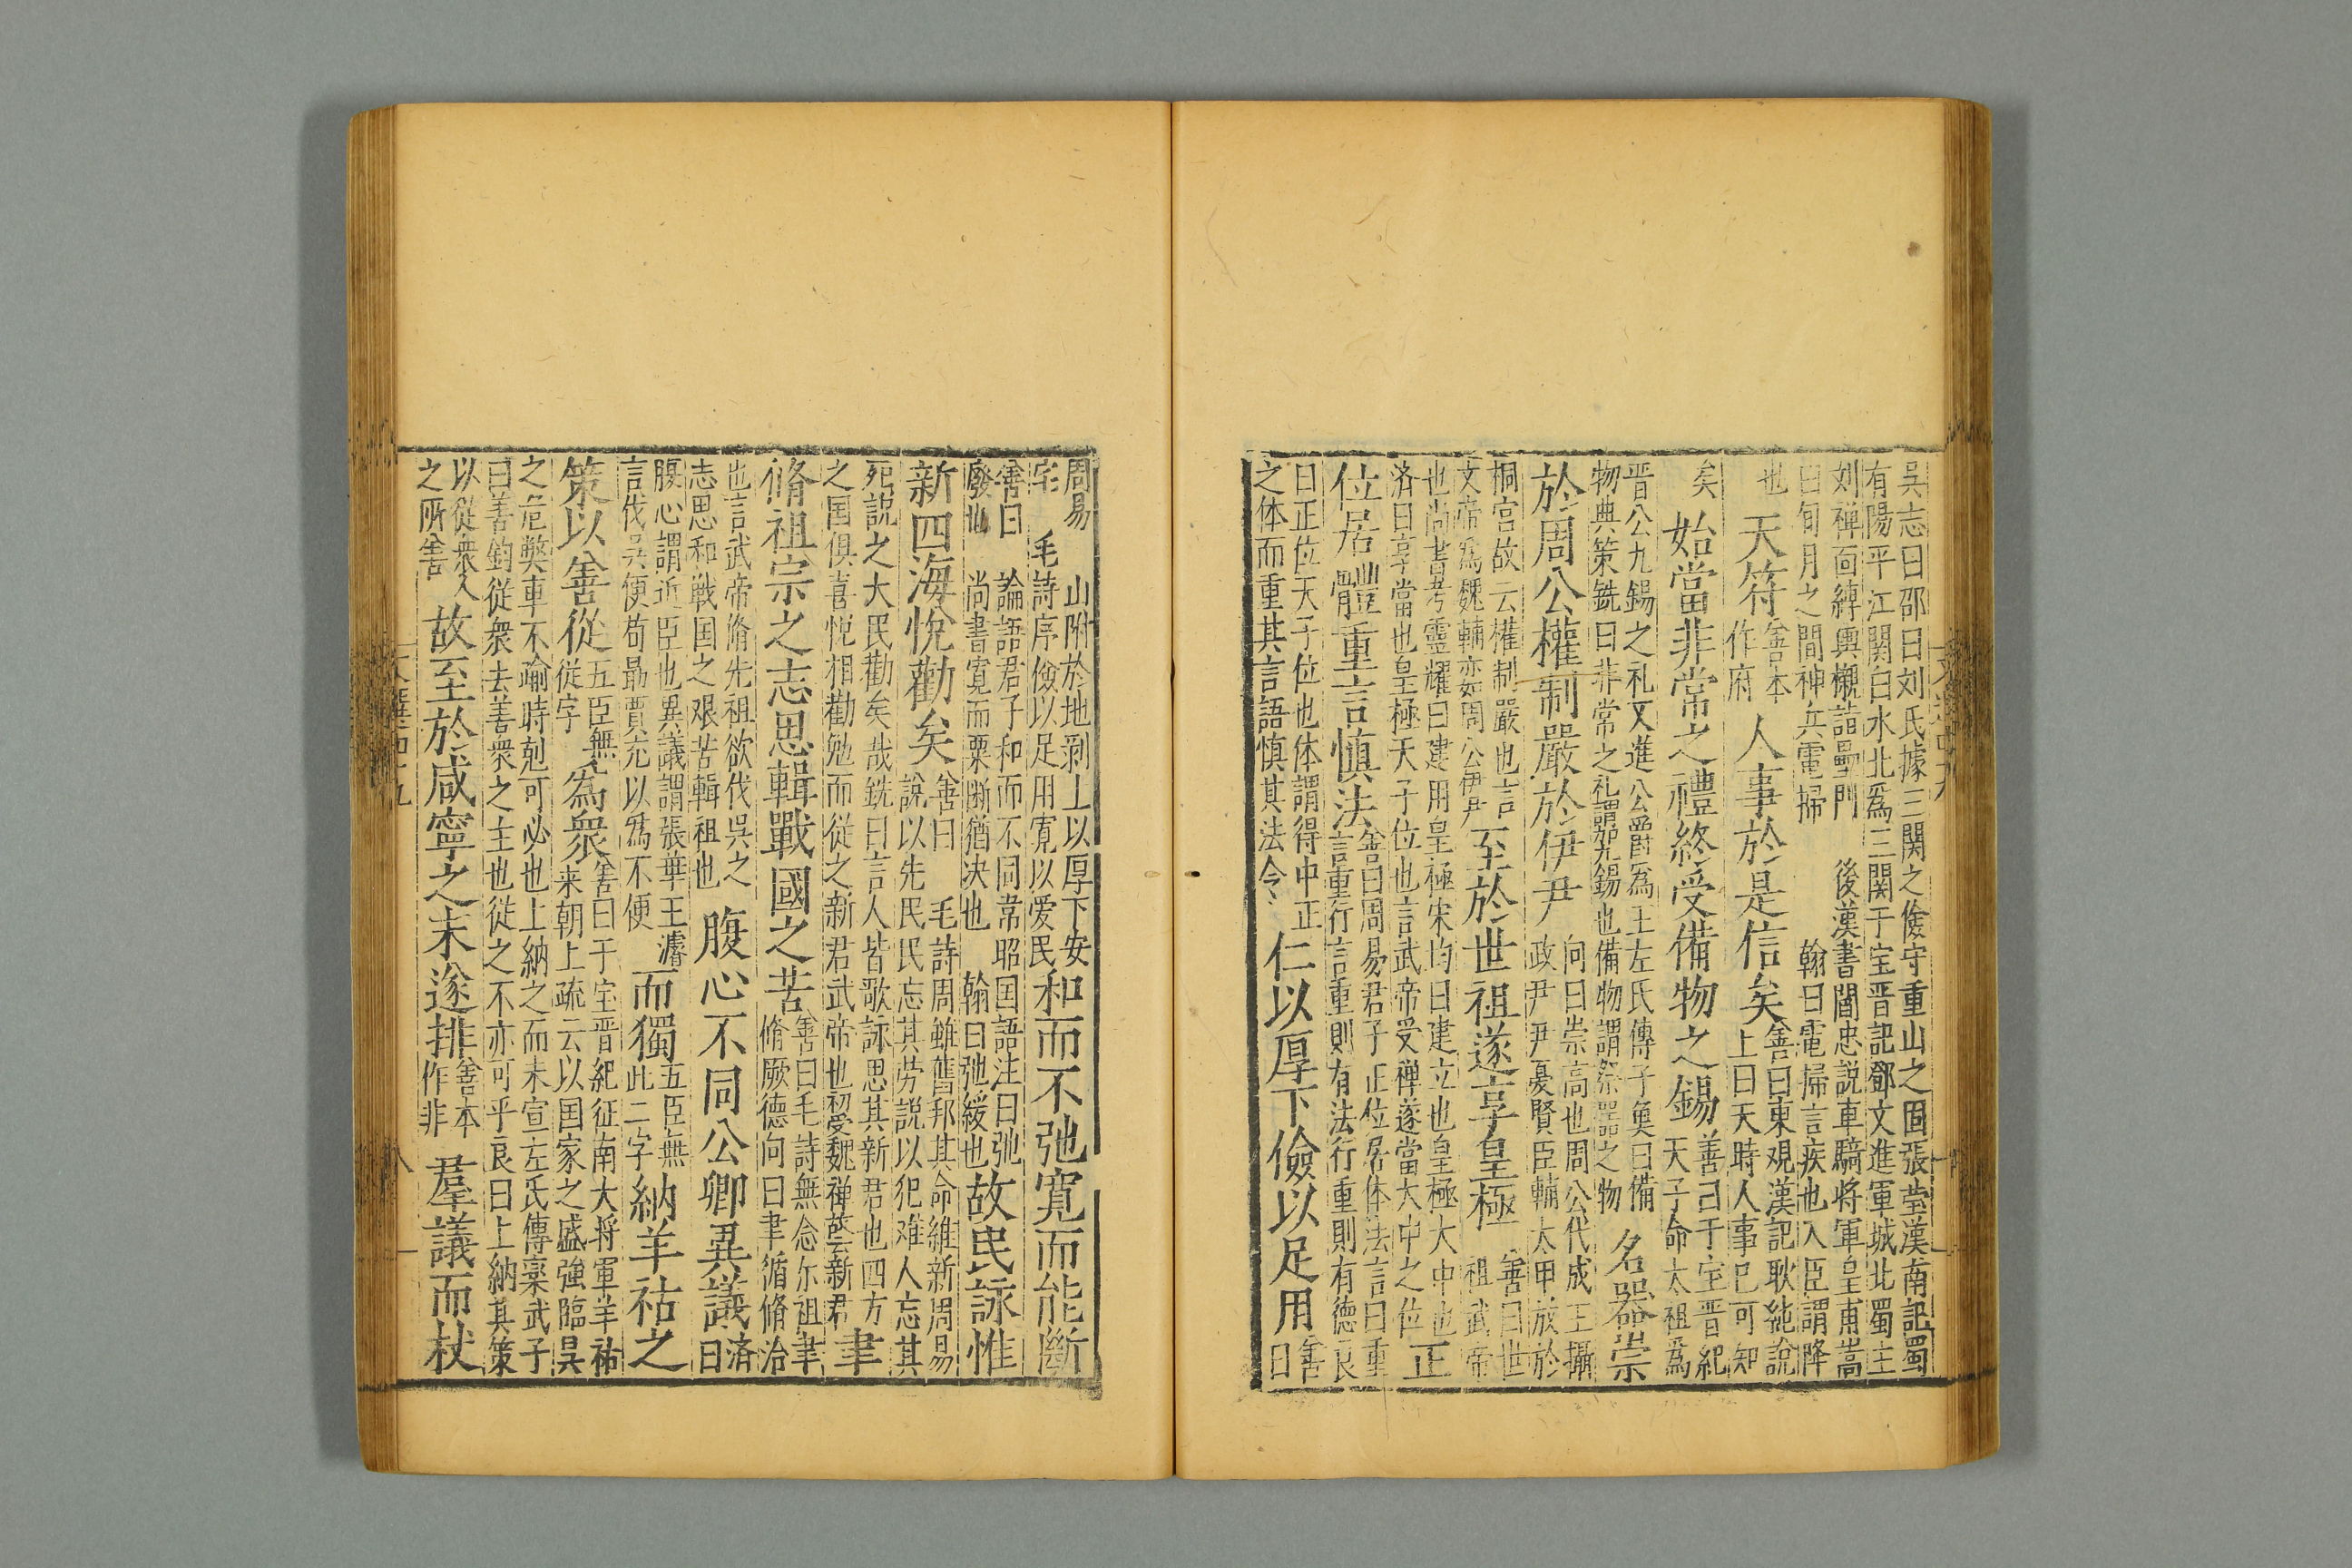 吳志曰邵曰刘氏據三関之儉守重山之固張瑩漢南記蜀
有陽平江関白水北為三関于宝晋記鄧文進軍城北蜀主
刘禅面縛輿櫬詣壘門　後漢書閻忠説車騎将軍皇甫嵩
曰旬月之間神兵電掃　翰曰電掃言疾也入臣謂降
也　天符善本作府　人事於是信矣善曰東观漢記耿純說上曰天時人事已可知
矣　始當非常之禮終受備物之錫善曰于宝晋紀天子命太祖爲
晋公九錫之礼又進公爵爲王左氏傳子奠曰備
物典策銑曰非常之礼謂加九錫也備物謂祭噐之物　名器崇
於周公權制嚴於伊尹　向曰崇高也周公代成王攝政尹尹憂賢臣輔太甲放於
桐宮故云權制嚴也言
文帝爲魏輔亦如周公伊尹　至於世祖遂享皇極　善曰世祖武帝
也尚書考靈耀曰建用皇極宋均曰建立也皇極大中也
济曰享當也皇極天子位也言武帝受禅遂當大中之位　正
位居體重言慎法善曰周易君子正位居体法言曰重言重行言重則有法行重則有德良
曰正位天子位也体謂得中正
之体而重其言語慎其法令　仁以厚下儉以足用善曰
周易　山附於地剥上以厚下安
宅　毛詩序儉以足用寛以爱民　和而不弛寛而能斷
善曰　論語君子和而不同常昭国語注曰弛
廢也　尚書寛而栗断猶決也　翰曰弛緩也　故民詠惟
新四海悅勸矣善曰　毛詩周雖舊邦其命維新周易說以先民民忘其劳説以犯难人忘其
死説之大民勸矣哉銑曰言人皆歌詠思其新君也四方
之国俱喜悅相勸勉而従之新君武帝也初受魏禅故云新君　聿
脩祖宗之志思輯戰國之苦善曰毛詩無念尔祖聿脩厥德向曰聿循脩治
也言武帝脩先祖欲伐吳之
志思和戦国之艰苦輯祖也　腹心不同公卿異議济曰
腹心謂近臣也異議謂張華王濬
言伐吳便荀勗賈充以為不便　而獨五臣無此二字納羊祜之
策以善從五臣無従字為衆善曰于宝晋紀征南大将軍羊祜来朝上疏云以国家之盛強臨吳
之危弊車不踰時剋可必也上納之而未宣左氏傳欒武子
曰善鈞従衆去善衆之主也従之不亦可乎良曰上納其策
以従衆人
之所善　故至於咸寧之末遂排善本作非　羣議而杖